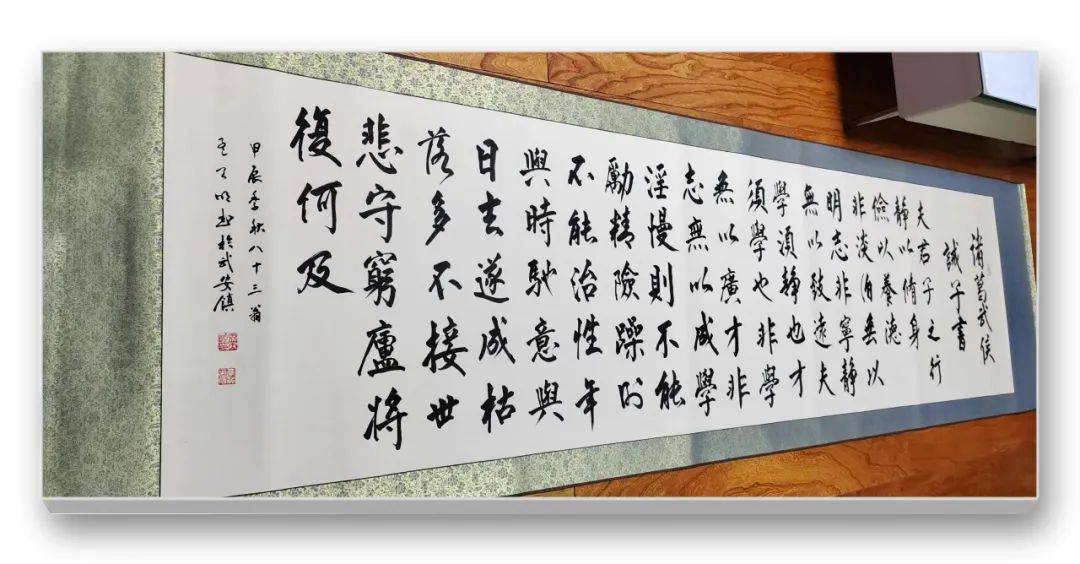 諸葛武侯
誡子書
夫君子之行
靜以脩身
儉以養德
非淡泊無以
明志非寧靜
無以致遠夫
學須靜也才
須學也非學
無以廣才非
志無以成學
淫慢則不能
勵精險躁則
不能治性年
與時馳意與
日去遂成枯
落多不接世
悲守窮廬將
復何及
甲辰季秋八十三翁
明書於武安鎮